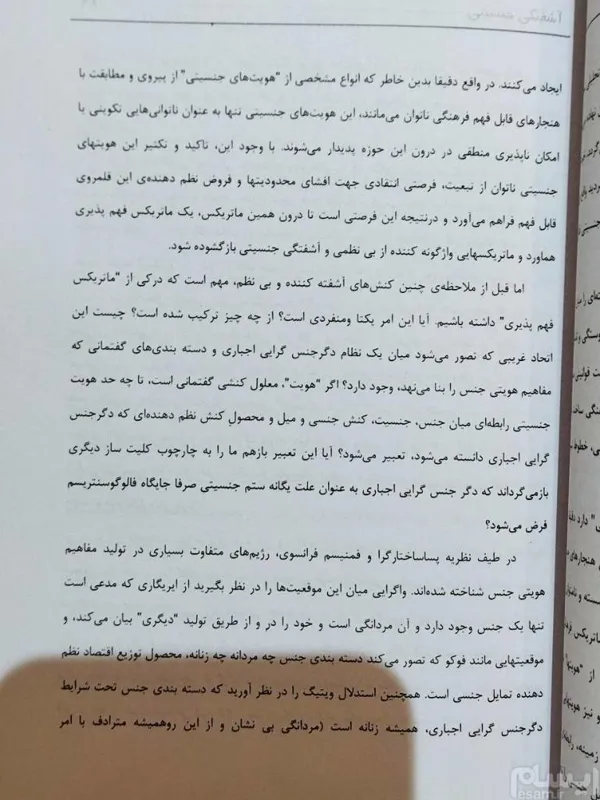 آشفتگی جنسیتی
ایجاد می‌کنند. در واقع دقیقا بدین خاطر که انواع مشخصی از "هویت‌های جنسیتی" از پیروی و مطابقت با
هنجارهای قابل فهم فرهنگی ناتوان می‌مانند، این هویت‌های جنسیتی تنها به عنوان ناتوانی‌هایی تکوینی یا
امکان ناپذیری منطقی در درون این حوزه پدیدار می‌شوند. با وجود این، تاکید و تکثیر این هویتهای
جنسیتی ناتوان از تبعیت، فرصتی انتقادی جهت افشای محدودیتها و فروض نظم دهنده‌ی این قلمروی
قابل فهم فراهم می‌آورد و درنتیجه این فرصتی است تا درون همین ماتریکس، یک ماتریکس فهم پذیری
هماورد و ماتریکسهایی واژگونه کننده از بی نظمی و آشفتگی جنسیتی بازگشوده شود.
اما قبل از ملاحظه‌ی چنین کنش‌های آشفته کننده و بی نظم، مهم است که درکی از "ماتریکس
فهم پذیری" داشته باشیم. آیا این امر یکتا ومنفردی است؟ از چه چیز ترکیب شده است؟ چیست این
اتحاد غریبی که تصور می‌شود میان یک نظام دگرجنس گرایی اجباری و دسته بندی‌های گفتمانی که
مفاهیم هویتی جنس را بنا می‌نهد، وجود دارد؟ اگر "هویت"، معلول کنشی گفتمانی است، تا چه حد هویت
جنسیتی رابطه‌ای میان جنس، جنسیت، کنش جنسی و میل و محصولِ کنش نظم دهنده‌ای که دگرجنس
گرایی اجباری دانسته می‌شود، تعبیر می‌شود؟ آیا این تعبیر بازهم ما را به چارچوب کلیت ساز دیگری
بازمی‌گرداند که دگر جنس گرایی اجباری به عنوان علت یگانه ستم جنسیتی صرفا جایگاه فالوگوسنتریسم
فرض می‌شود؟
در طیف نظریه پساساختارگرا و فمنیسم فرانسوی، رژیم‌های متفاوت بسیاری در تولید مفاهیم
هویتی جنس شناخته شده‌اند. واگرایی میان این موقعیت‌ها را در نظر بگیرید از ایریگاری که مدعی است
تنها یک جنس وجود دارد و آن مردانگی است و خود را در و از طریق تولید "دیگری" بیان می‌کند، و
موقعیتهایی مانند فوکو که تصور می‌کند دسته بندی جنس چه مردانه چه زنانه، محصول توزیع اقتصاد نظم
دهنده تمایل جنسی است. همچنین استدلال ویتیگ را در نظر آورید که دسته بندی جنس تحت شرایط
دگرجنس گرایی اجباری، همیشه زنانه است (مردانگی بی نشان و از این روهمیشه مترادف با امر
ایسام
esam.ir